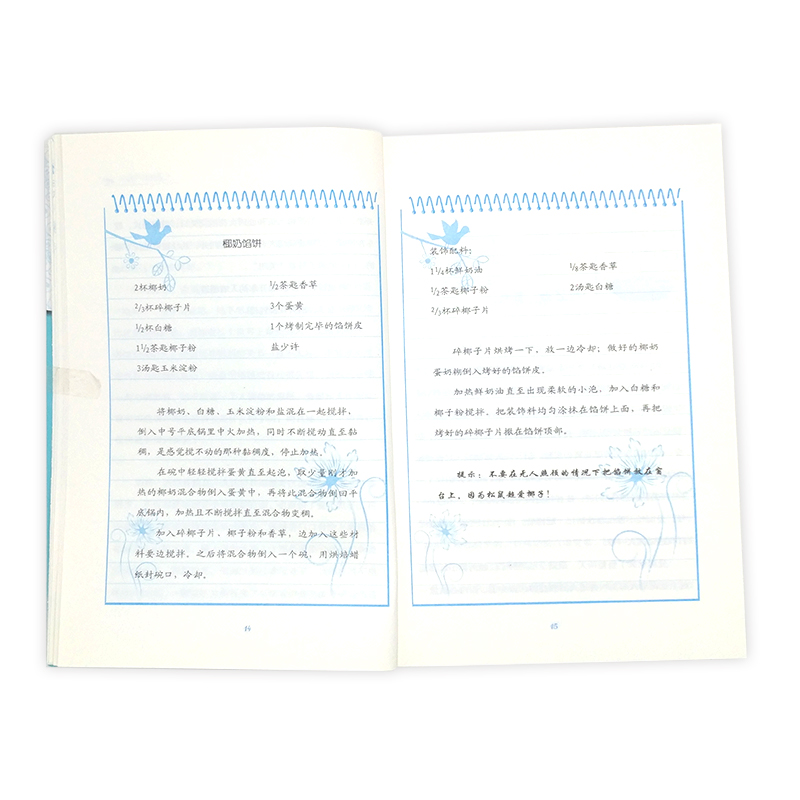 椰奶馅饼
2杯椰奶
½茶匙香草
⅔杯碎椰子片
3个蛋黄
½杯白糖
1个烤制完毕的馅饼皮
1½茶匙椰子粉
盐少许
3汤匙玉米淀粉
将椰奶、白糖、玉米淀粉和盐混在一起搅拌,
倒入中号平底锅里中火加热,同时不断搅动直至黏
稠,是感觉搅不动的那种黏稠度,停止加热。
在碗中轻轻搅拌蛋黄直至起泡。取少量刚才加
热的椰奶混合物倒入蛋黄中,再将此混合物倒回平
底锅内,加热且不断搅拌直至混合物变稠。
加入碎椰子片,椰子粉和香草,边加入这些材
料要边搅拌。之后将混合物倒入一个碗,用烘焙蜡
纸封碗口,冷却。
14
装饰配料:
1¼杯鲜奶油
⅛茶匙香草
½茶匙椰子粉
2汤匙白糖
⅔杯碎椰子片
碎椰子片烘烤一下,放一边冷却;做好的椰奶
蛋奶糊倒入烤好的馅饼皮。
加热鲜奶油直至出现柔软的小泡,加入白糖和
椰子粉搅拌。把装饰料均匀涂抹在馅饼上面,再把
烤好的碎椰子片撒在馅饼顶部。
提示:不要在无人照顾的情况下把馅饼放在窗
台上,因为松鼠超爱椰子!
15